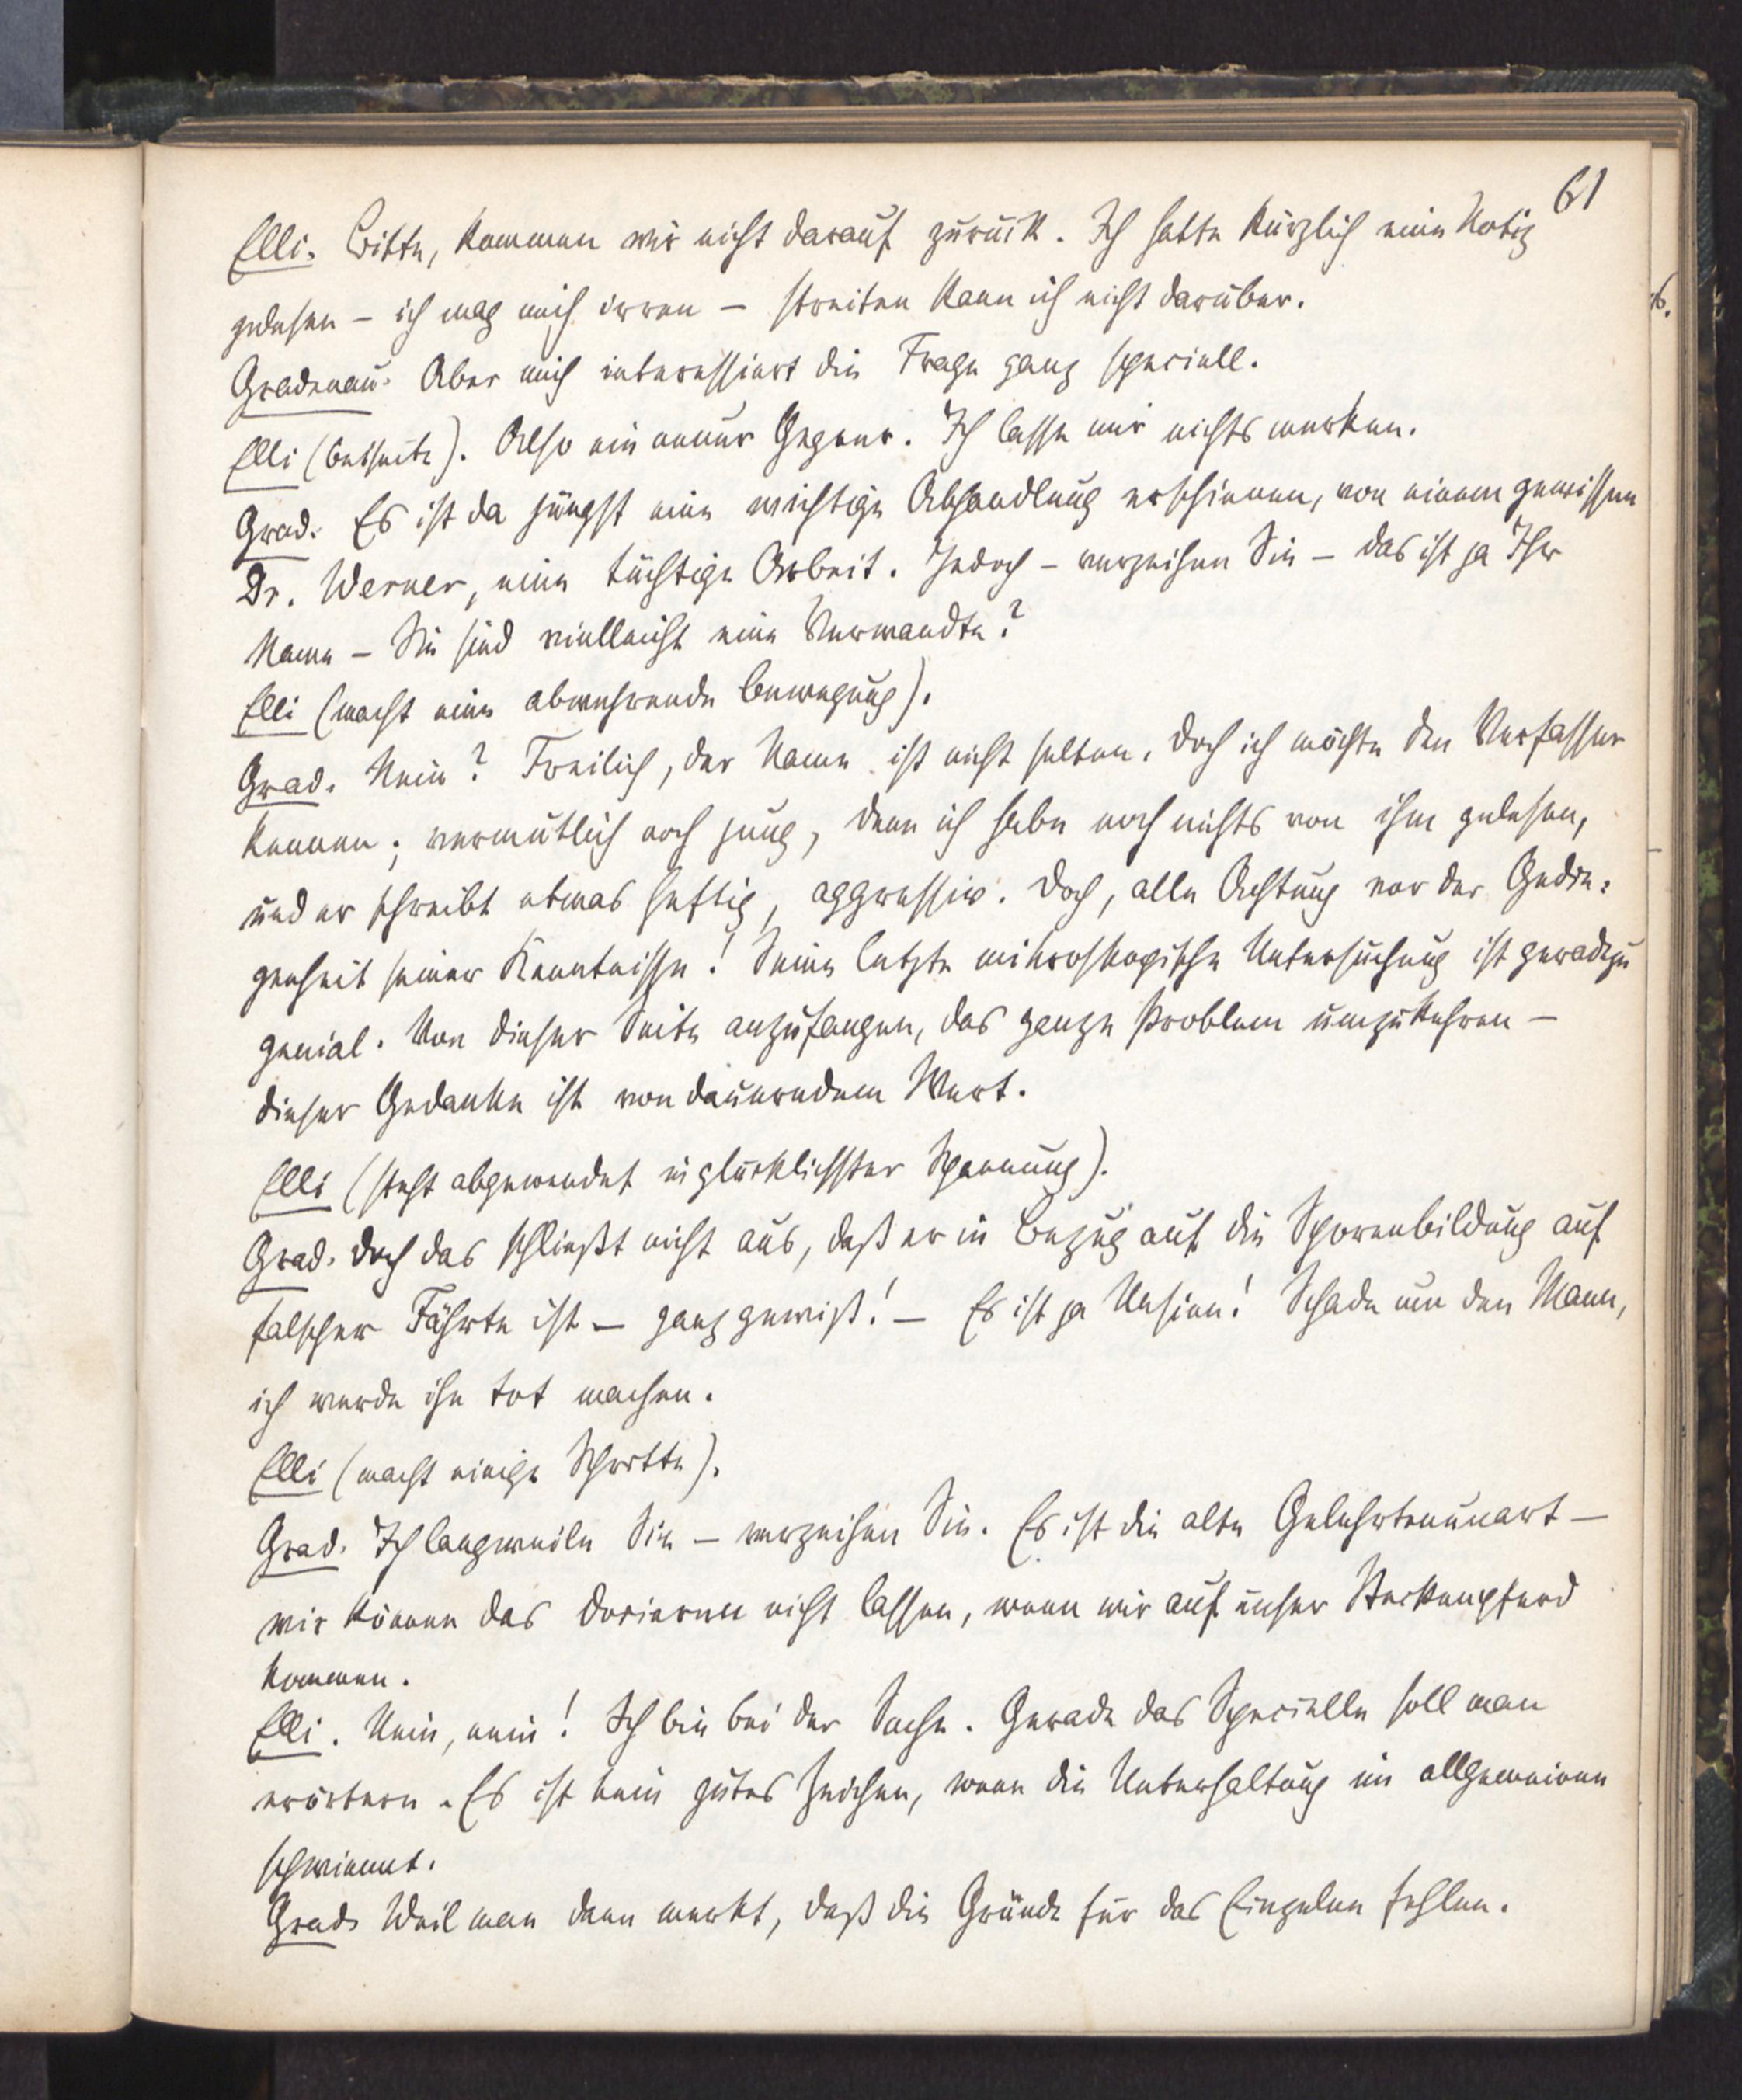 61
Elli. Bitte, kommen wir nicht darauf zurück. Ich hatte kürzlich eine Notiz
gelesen – ich mag mich irren – streiten kann ich nicht darüber.
Gradenau. Aber mich interessiert die Frage ganz speciell.
Elli (beiseite). Also ein neuer Gegner. Ich lasse mir nichts merken.
Grad. Es ist da jüngst eine wichtige Abhandlung erschienen, von einem gewissen
Dr. Werner, eine tüchtige Arbeit. Jedoch – verzeihen Sie – das ist ja Ihr
Name – Sie sind vielleicht eine Verwandte?
Elli (macht eine abwehrende Bewegung).
Grad. Nein? Freilich, der Name ist nicht selten. Doch ich möchte den Verfasser
kennen; vermutlich noch jung, denn ich habe noch nichts von ihm gelesen,
und er schreibt etwas heftig, aggressiv. Doch, alle Achtung vor der Gedie-
genheit seiner Kenntnisse! Seine letzte mikroskopische Untersuchung ist geradezu
genial. Von dieser Seite anzufangen, das ganze Problem umzukehren –
dieser Gedanke ist von dauerndem Wert.
Elli (steht abgewendet in glücklichster Spannung).
Grad. Doch das schließt nicht aus, daß er in Bezug auf die Sporenbildung auf
falscher Fährte ist – ganz gewiß! – Es ist ja Unsinn! Schade um den Mann,
ich werde ihn tot machen.
Elli (macht einige Schritte).
Grad. Ich langweile Sie – verzeihen Sie. Es ist die alte Gelehrtenunart –
wir können das Docieren nicht lassen, wenn wir auf unser Steckenpferd
kommen.
Elli. Nein, nein! Ich bin bei der Sache. Gerade das Specielle soll man
erörtern. Es ist kein gutes Zeichen, wenn die Unterhaltung im allgemeinen
schwimmt.
Grad. Weil man dann merkt, daß die Gründe für das Einzelne fehlen.